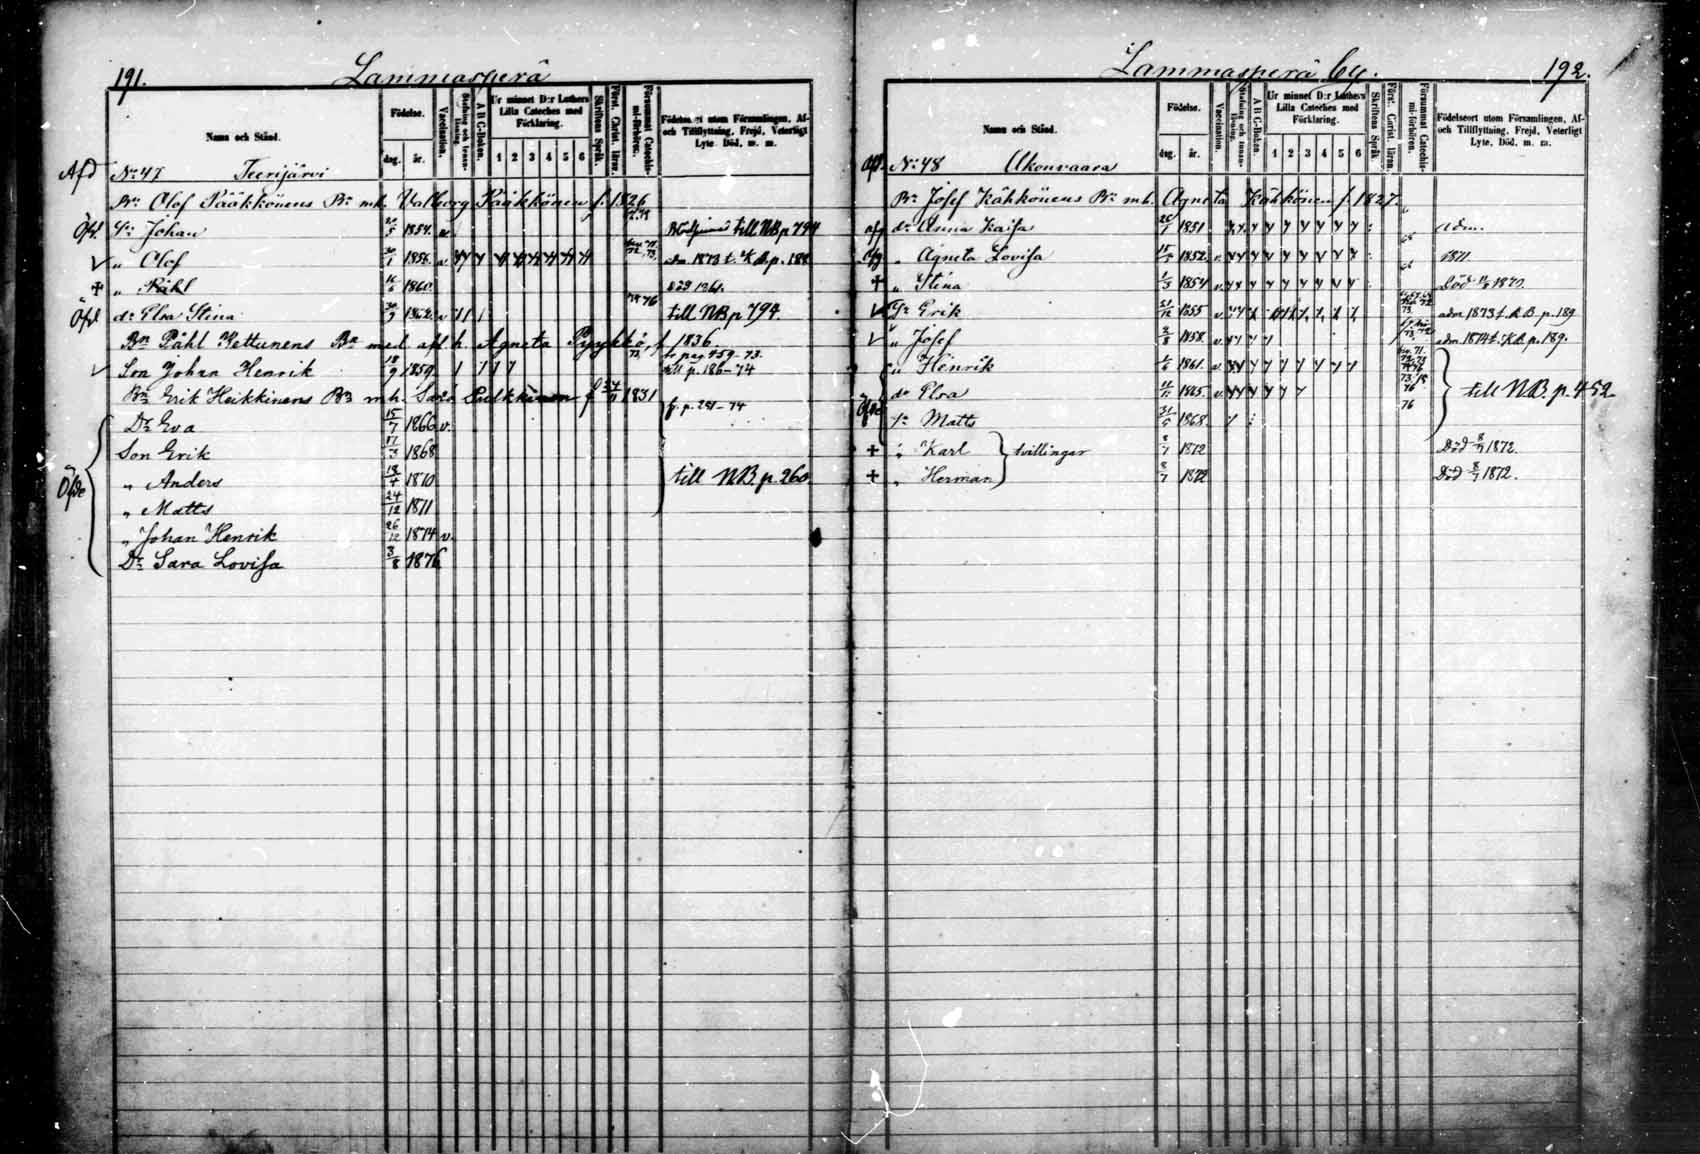 191. Lammasperä
Namn och Stånd.
Födelse.
dag. år.
Vaccination.
A B C-Boken.
Ur minnet D:r Luthers Lilla Cateches med Förklaring.
1 2 3 4 5 6
Skriftens Språk.
Först. Christ. lären.
Försummat Catechismi-förhören.
Födelseort utom Församlingen, Af- och Tillflyttning, Frejd, Veterligt Lyte. Död. m. m.
Afd No 47 Teerijärvi
Bn Olof Pääkkönens Bn m h. Valborg Pääkkönen f. 1826
Öfd. Sn Johan 1854. v till NB p 794
" Olof 1856. v. adm. 1873 t. K.B. p. 189
+ " Påhl 1860. Död 1861.
Öfd dr Elsa Stina 1862. v 76 till NB p 794
Bn Påhl Kettunens Bn med afl. h. Agneta Pyykkö, f 1836.
Son Johan Henrik 18/9 1859. till p. 186-74
Bn Erik Heikkinens Bn m h. Sara Pulkkinen f 1831
Dr Eva 15/7 1866 v. fr. p. 281-74
Son Erik 17/3 1868
Öfde " Anders 18/4 1870 till NB p. 260
" Matts 24/12 1871
" Johan Henrik 26/12 1874 v.
Dr Sara Lovisa 3/8 1876
Lammasperä by. 192.
Namn och Stånd.
Födelse.
dag. år.
Vaccination.
A B C-Boken.
Ur minnet D:r Luthers Lilla Cateches med Förklaring.
1 2 3 4 5 6
Skriftens Språk.
Först. Christ. lären.
Försummat Catechismi-förhören.
Födelseort utom Församlingen, Af- och Tillflyttning, Frejd, Veterligt Lyte. Död. m. m.
No 48 Akonvaara
Bn Josef Kähkönens Bn m h. Agneta Kähkönen f. 1827.
dr Anna Kaisa 1851. adm.
" Agneta Lovisa 1852. v. 1871
+ " Stina 1854 v. Död 1870.
Sn Erik 31/12 1855 v. adm 1873 t. K.B. p. 189
" Josef 1858. v. adm. 1874 t. K.B. p. 189.
" Henrik 1861. v.
dr Elsa 1865. v. till NB. p. 452
Sn Matts 31/5 1868.
+ " Karl tvillingar 1872 Död 8/7 1872.
+ " Herman 1872 Död 8/7 1872.